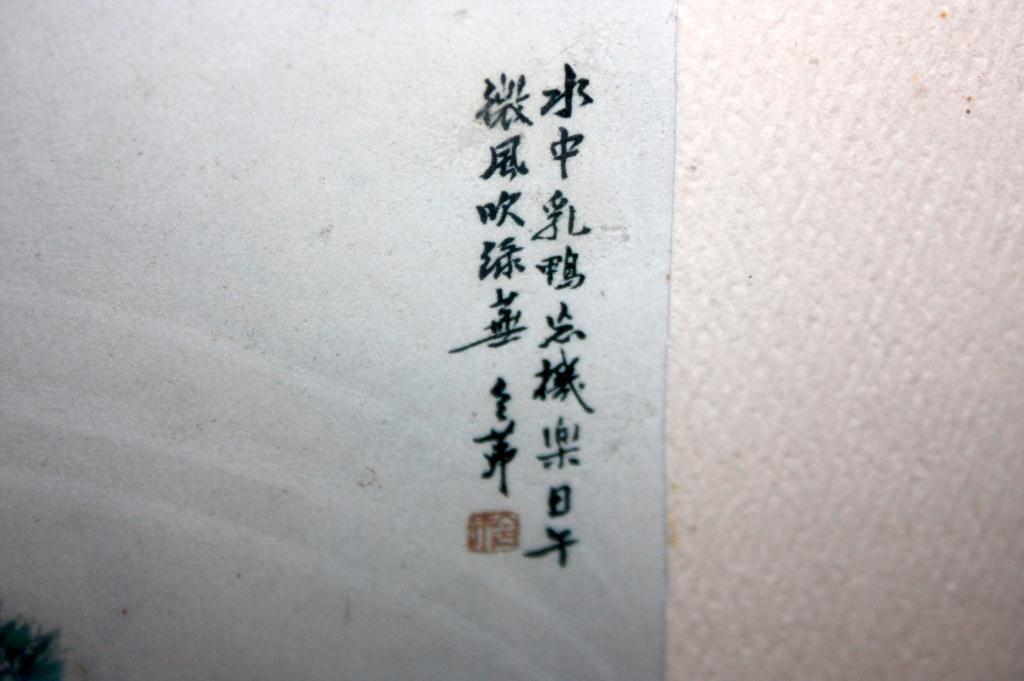 水中乳鴨忘機樂日午
微風吹綠蕪